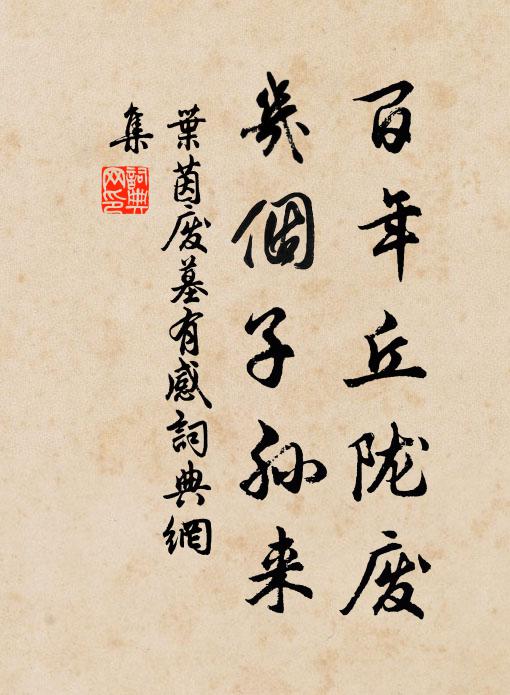 百年丘陇废
几個子孙来
葉茵废墓有感詞典網
集
詞典
网印